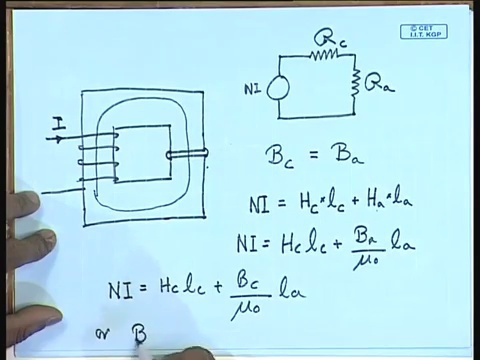 © CET
I.I.T. KGP
R_c
NI
R_a
I
B_c = B_a
NI = H_c*l_c + H_a*l_a
NI = H_c l_c + B_a/μ_0 l_a
NI = H_c l_c + B_c/μ_0 l_a
or B